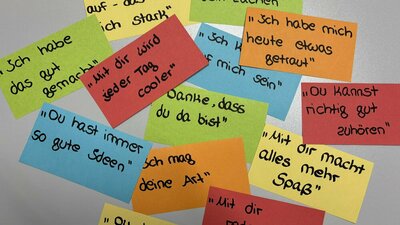 auf - das
ich stark"
"Ich habe
das gut
gemacht"
"Mit dir wird
jeder Tag
cooler"
"Ich habe mich
heute etwas
getraut"
f mich sein"
"Danke, dass
du da bist"
"Du kannst
richtig gut
zuhören"
"Du hast immer
so gute Ideen"
"Ich mag
deine Art"
"Mit dir macht
alles mehr
Spaß"
"Mit dir